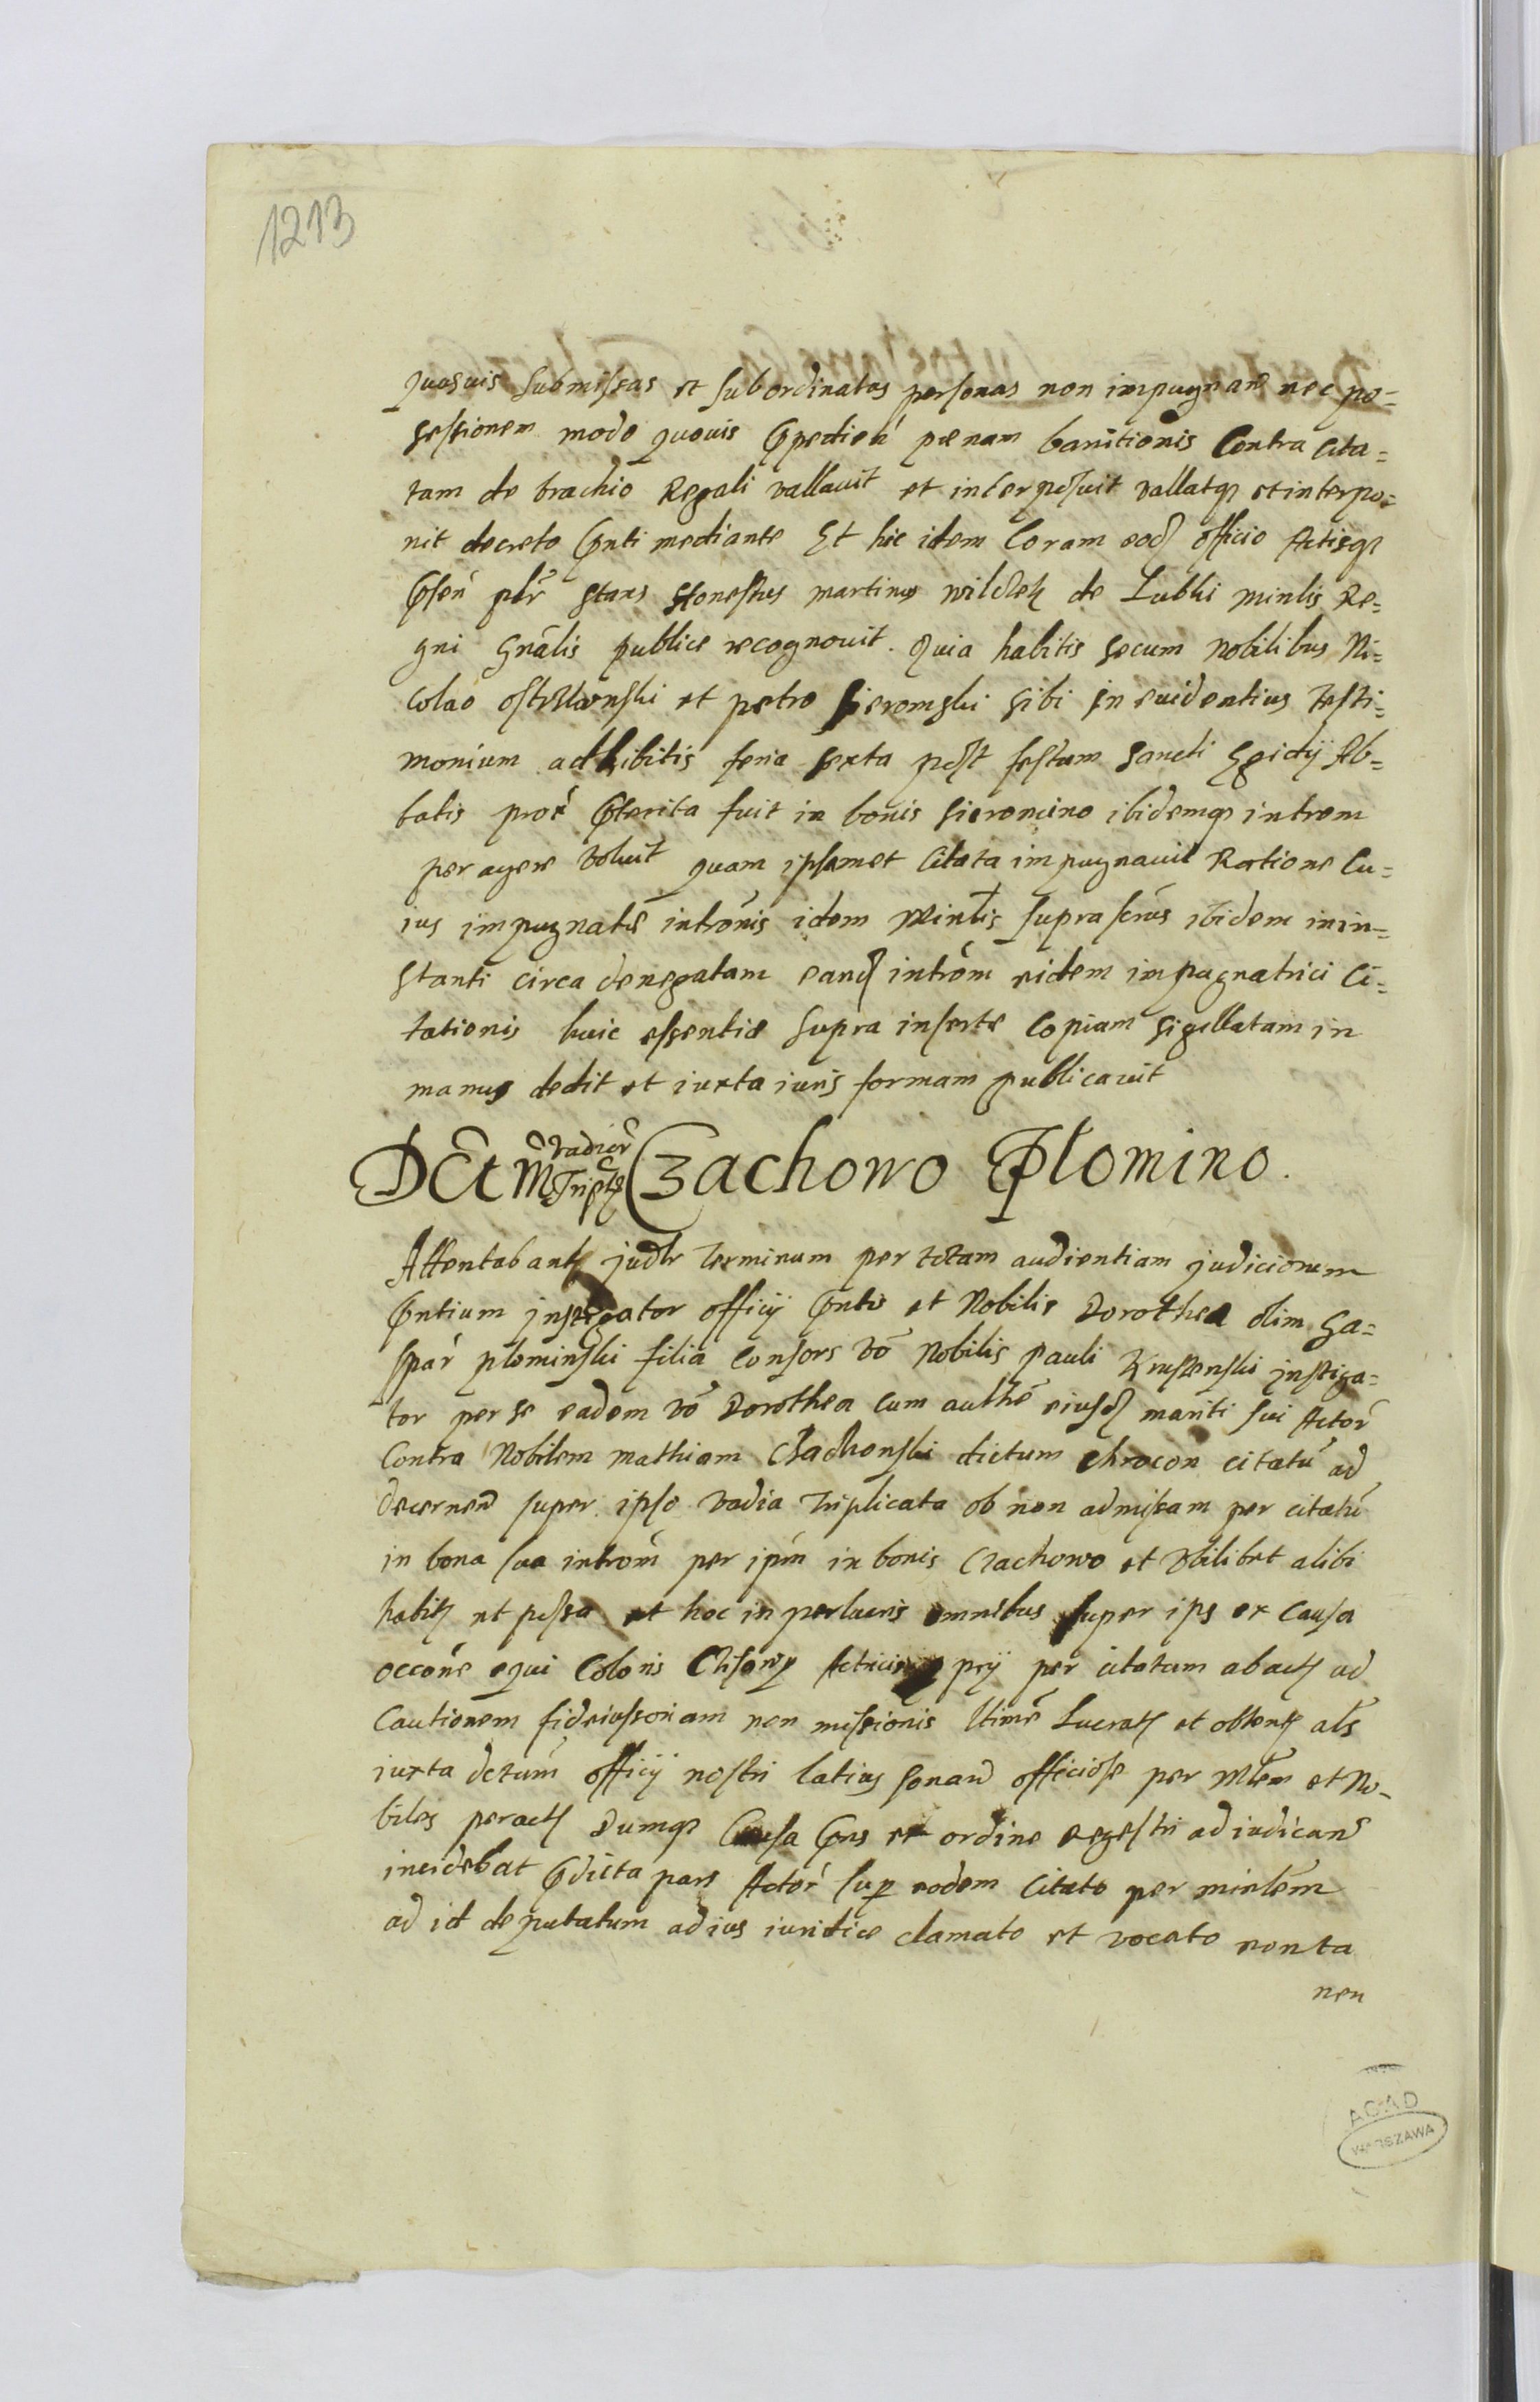 1213
quasuis submissas et subordinatas personas non impugnare nec po=
sessionem modo quouis Impedien pænam banitionis Contra Cita=
tam de brachio Regali vallauit et interposuit vallatqꝫ et interpo=
nit decreto pnti mediante Et hic idem Coram eod officio Actisqꝫ
psen plr stans Honestus martinus wilczek de Lubki minlis Re=
gni Gnalis publice recognouit. Quia habitis secum Nobilibus Ni=
colao et petro Sieromski sibi in euidentius testi=
monium adhibitis feria sexta post festum Sancti Egidÿ Ab=
batis prox pterita fuit in bonis Sieromino ibidemqꝫ introm
peragere voluit quam ipsamet Citata impugnauit Ratione Cu=
ius impugnate intronis idem Minlis suprascrus ibidem in in=
stanti circa denegatam eand introm eidem impugnatrici Ci=
tationis huic essentiæ supra inserte Copiam sigillatam in
manus dedit et iuxta iuris formam publicauit
DCtm vadior Triplꝫ Czachowo Plomino.
Attentabant judlr Terminum per totam audientiam judiciorum
pntium instigator officÿ pntis et Nobilis Dorothea olim Ga=
spar plominski filia Consors vo Nobilis Pauli instiga=
tor per se eadem vo Dorothea cum authe eiusd mariti sui Actor
Contra Nobilem Mathiam Czachowski dictum Chrocon citatu ad
decernend super ipso vadia Triplicata ob non admissam per citatu
in bona sua introm per ipm in bonis Czachowo et vbilibet alibi
habit et possa et hoc in perlucris omnibus super ips ex Causa
occone equi Coloris Actricis prÿ per citatum abact ad
Cautionem fideiussoriam non missionis ltime Lucrat et obtent als
iuxta dctum officÿ nostri latius sonand officiose per Mlem et No=
biles peract Dumqꝫ Causa pns ex ordine regestri ad iudicand
incidebat pdicta pars Actor sup eodem Citato per minlem
ad id deputatum ad ius iuridice clamato et vocato non ta
men
AGAD
WARSZAWA